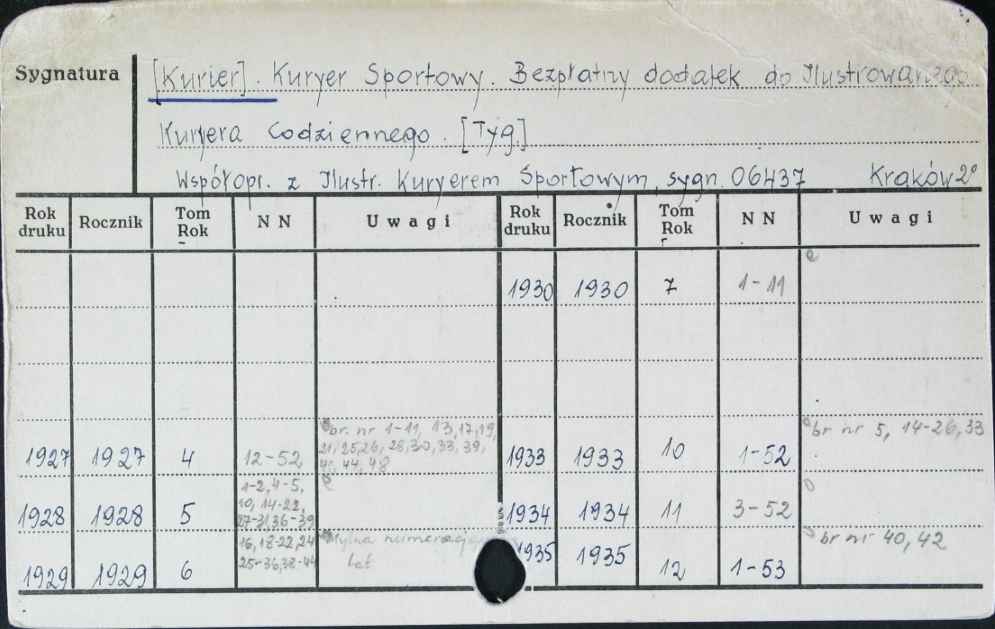 Sygnatura
[Kurier]. Kuryer Sportowy. Bezpłatny dodatek do Ilustrowanego
Kuryera Codziennego. [Tyg.]
Współopr. z Ilustr. Kuryerem Sportowym, sygn. 06437 Kraków 2°
Rok druku Rocznik Tom Rok NN Uwagi Rok druku Rocznik Tom Rok NN Uwagi
1930 1930 7 1-11
1927 1927 4 12-52 br. nr 1-11, 13, 17, 19, 21, 25, 26, 28, 30, 33, 39, 44, 48 1933 1933 10 1-52 br nr 5, 14-26, 33
1928 1928 5 1-2, 4-5, 10, 14-22, 27-31, 36-39 1934 1934 11 3-52
1929 1929 6 16, 18-22, 24 25-36, 38-44 Mylna numeracja lat 1935 1935 12 1-53 br nr 40, 42